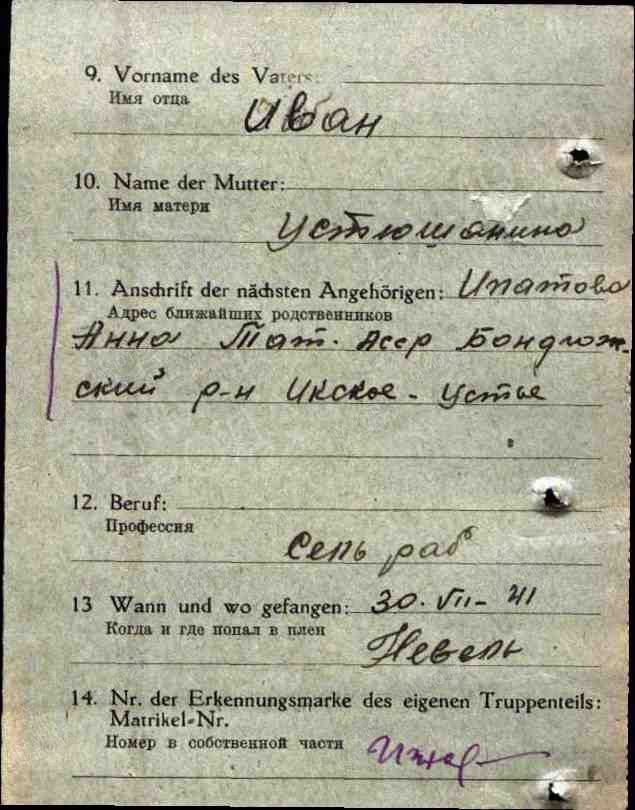 9. Vorname des Vaters:
Имя отца
Иван
10. Name der Mutter:
Имя матери
Устюшанина
11. Anschrift der nächsten Angehörigen: Ипатова
Адрес ближайших родственников
Анна Тат. Асср Бондюж-
ский р-н Икское - Устье
12. Beruf:
Профессия
Сель раб
13 Wann und wo gefangen: 30. VII - 41
Когда и где попал в плен
Невель
14. Nr. der Erkennungsmarke des eigenen Truppenteils:
Matrikel-Nr.
Номер в собственной части